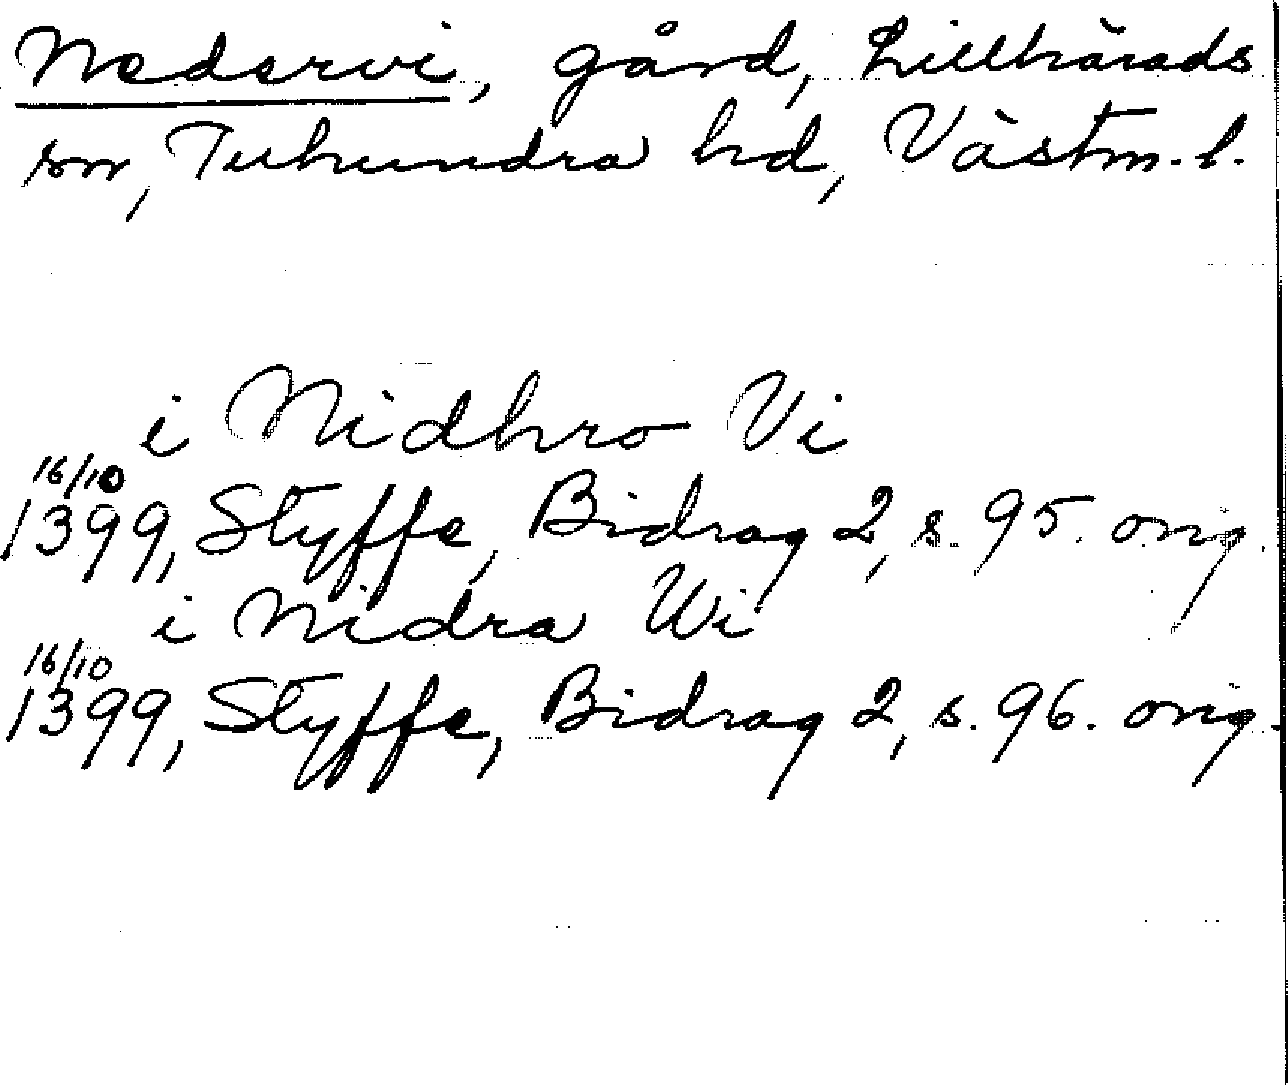 Nedervi, gård, Lillhärads
sn, Tuhundra hd, Västm. l.
i Nidhro Vi
16/10
1399, Styffe, Bidrag 2, s. 95. orig.
i Nidra Wi
16/10
1399, Styffe, Bidrag 2, s. 96. orig.